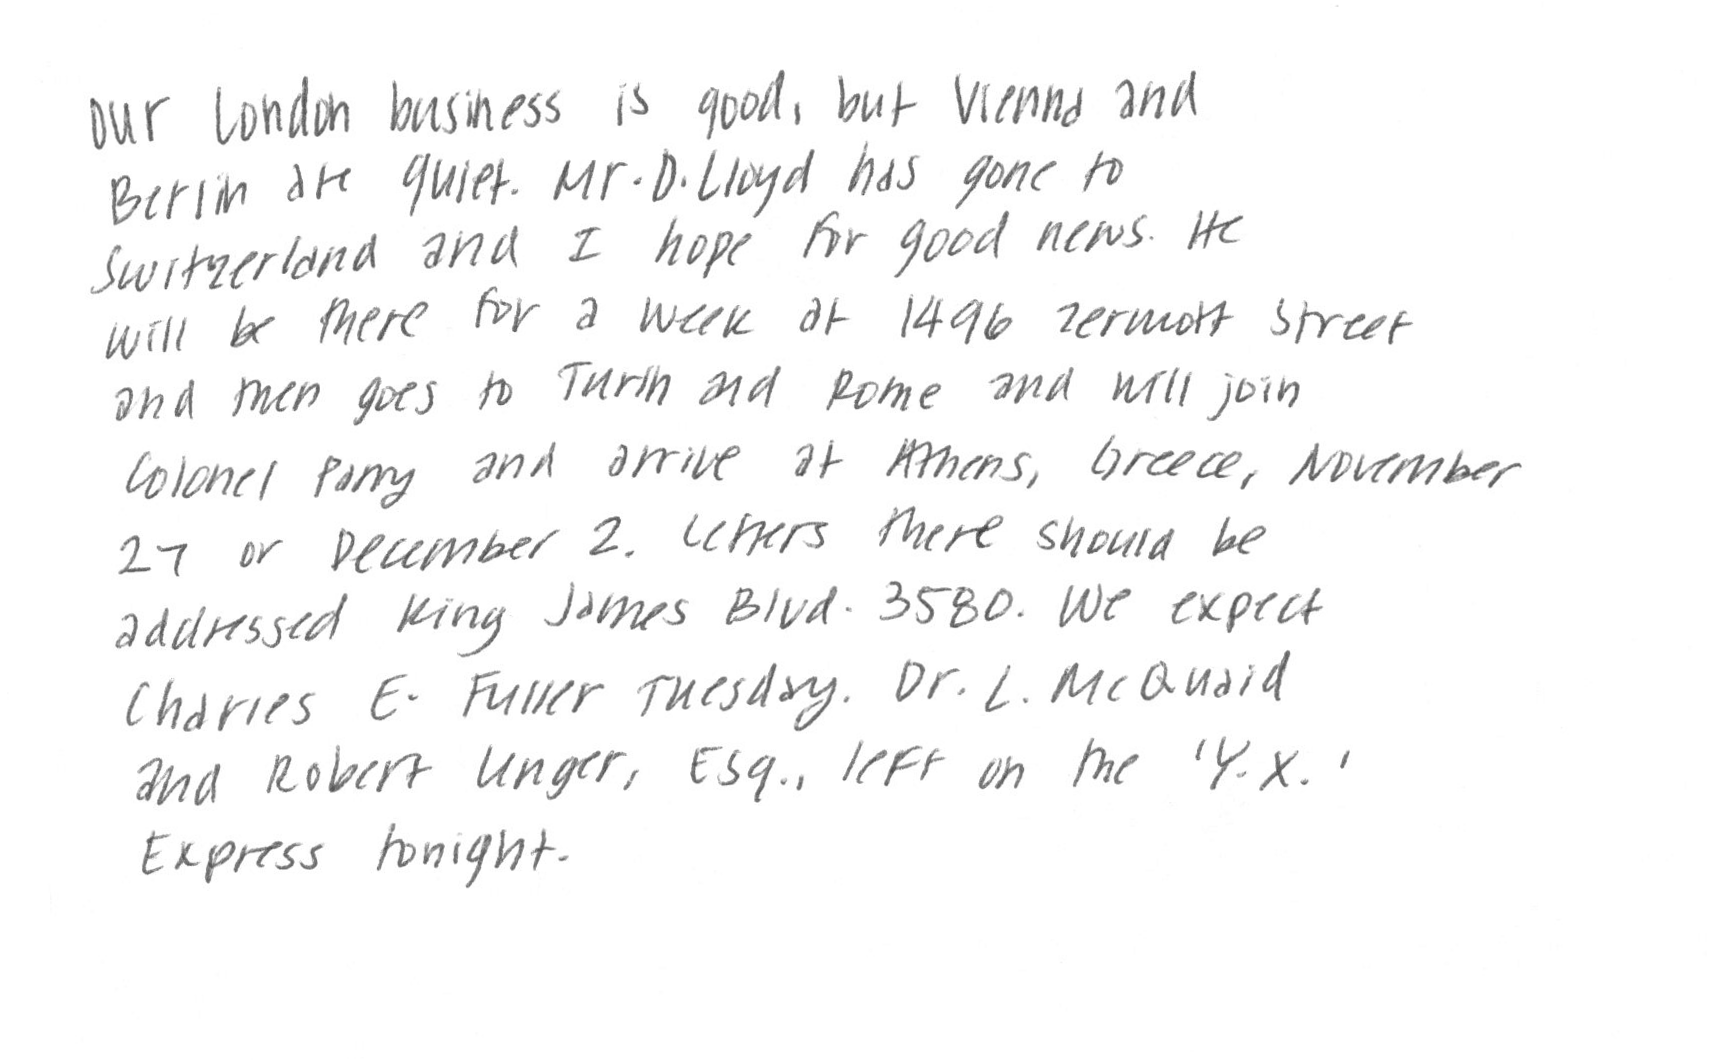 Our London business is good, but Vienna and
Berlin are quiet. Mr. D. Lloyd has gone to
Switzerland and I hope for good news. He
will be there for a week at 1496 Zermott Street
and then goes to Turin and Rome and will join
Colonel Parry and arrive at Athens, Greece, November
27 or December 2. Letters there should be
addressed King James Blvd. 3580. We expect
Charles E. Fuller Tuesday. Dr. L. McQuaid
and Robert Unger, Esq., left on the 'Y.X.'
Express tonight.